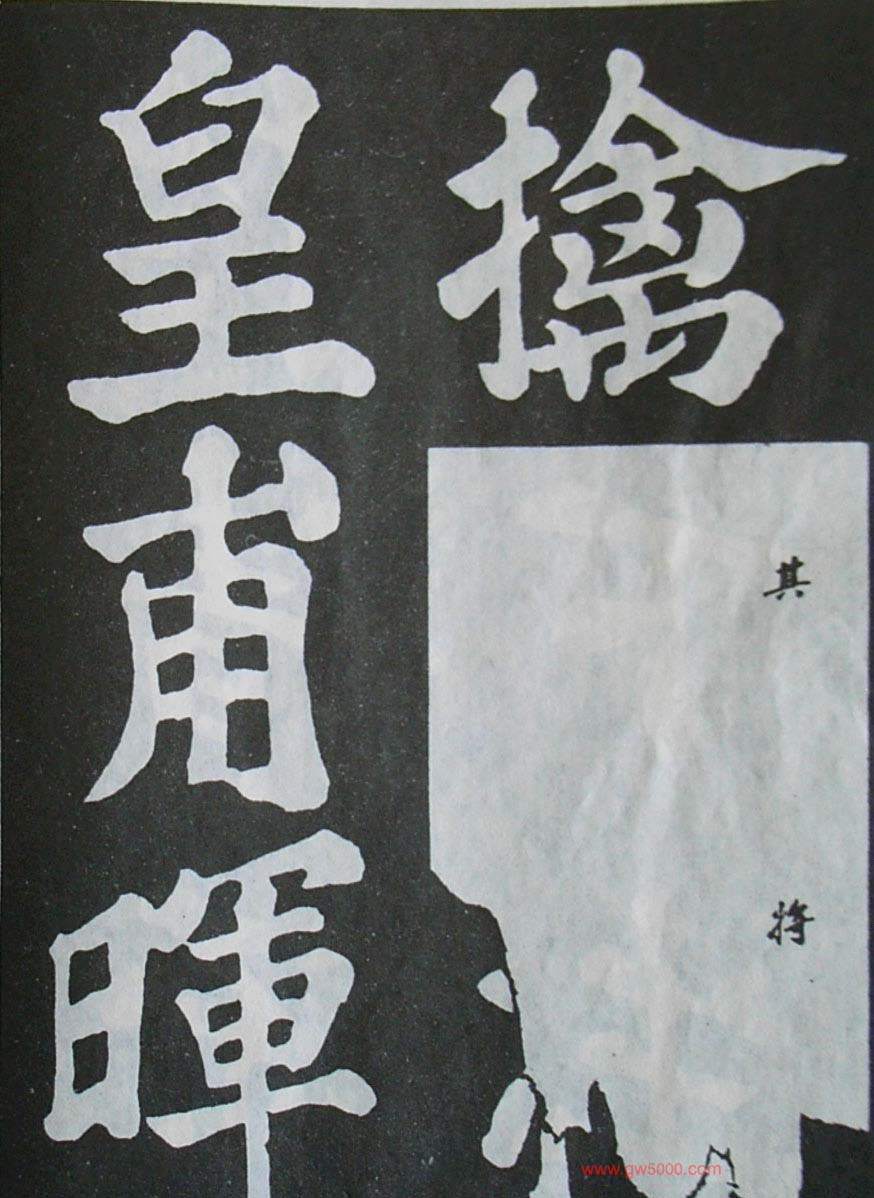 擒其将
皇甫暉
www.gw5000.com